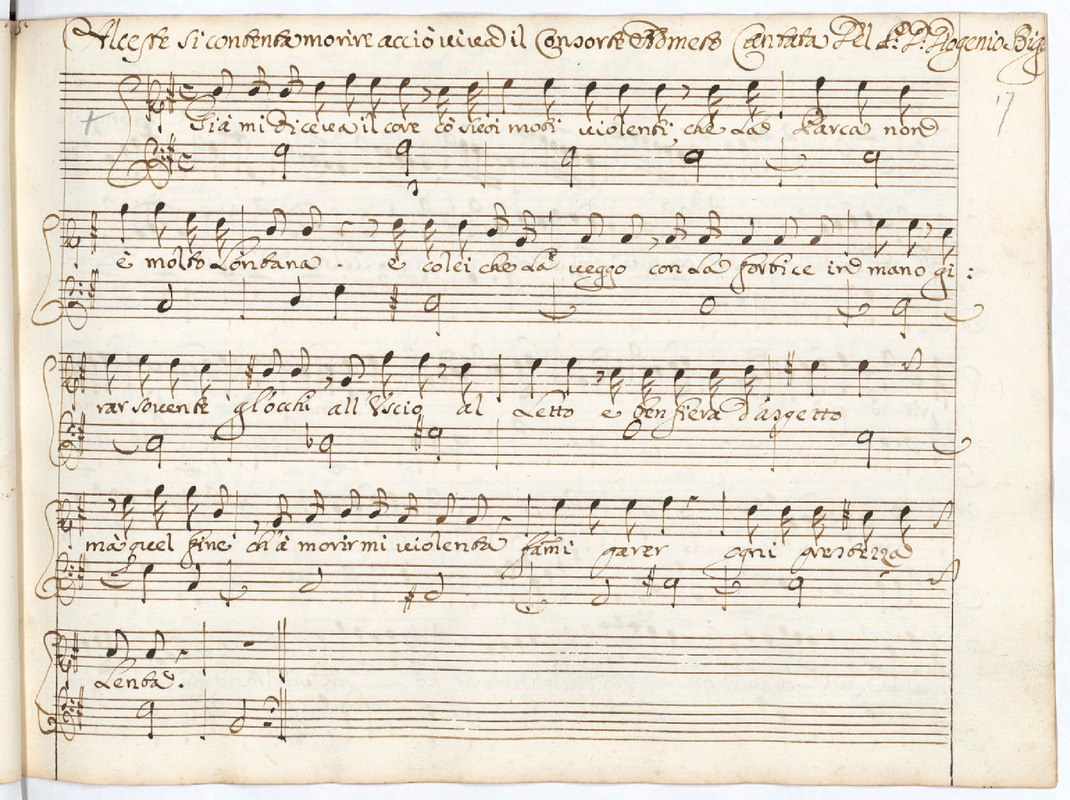 Alceste si contenta morire acciò viva il Consorte Admeto Cantata Del Sr. D. Eogenio Big
17
Già mi diceva il core cò suoi moti violenti che La Parca non
è molto Lontana. e colei che La veggo con La forbice in mano gi:
rar sovente gl'occhi all Uscio al Letto e ben fiera d'aspetto
mà quel fine ch'à morir mi violenta fami parer ogni prestezza
Lenta.